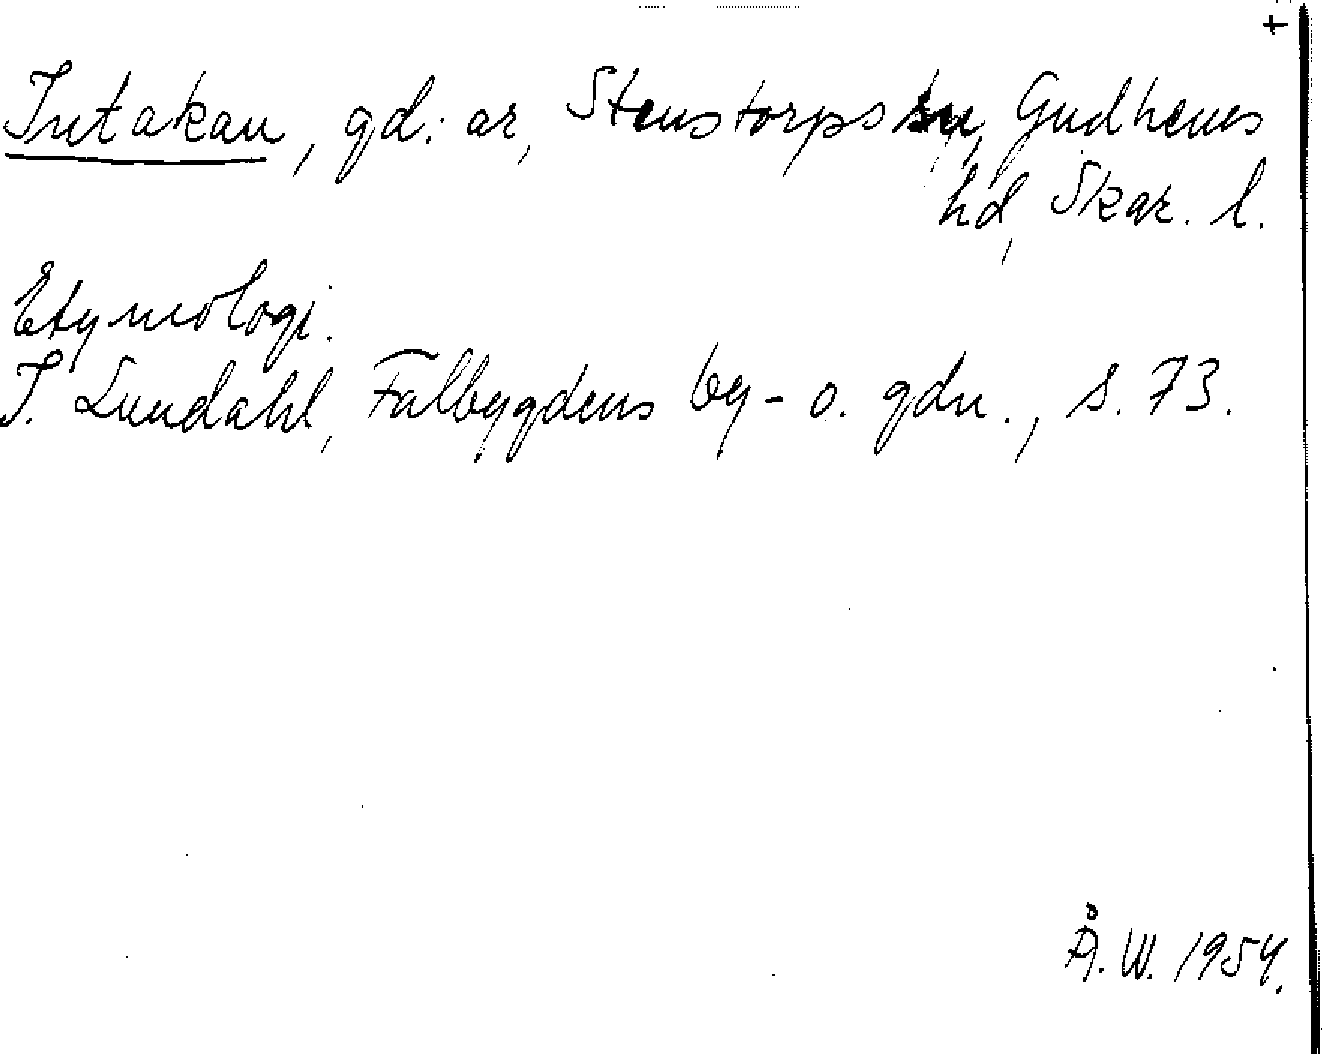 +
Intakan, gd: ar, Stenstorps sn, Gudhems
hd, Skar. l.
Etymologi.
I. Lundahl, Falbygdens by- o. gdn., s. 73.
Å. W. 1954.